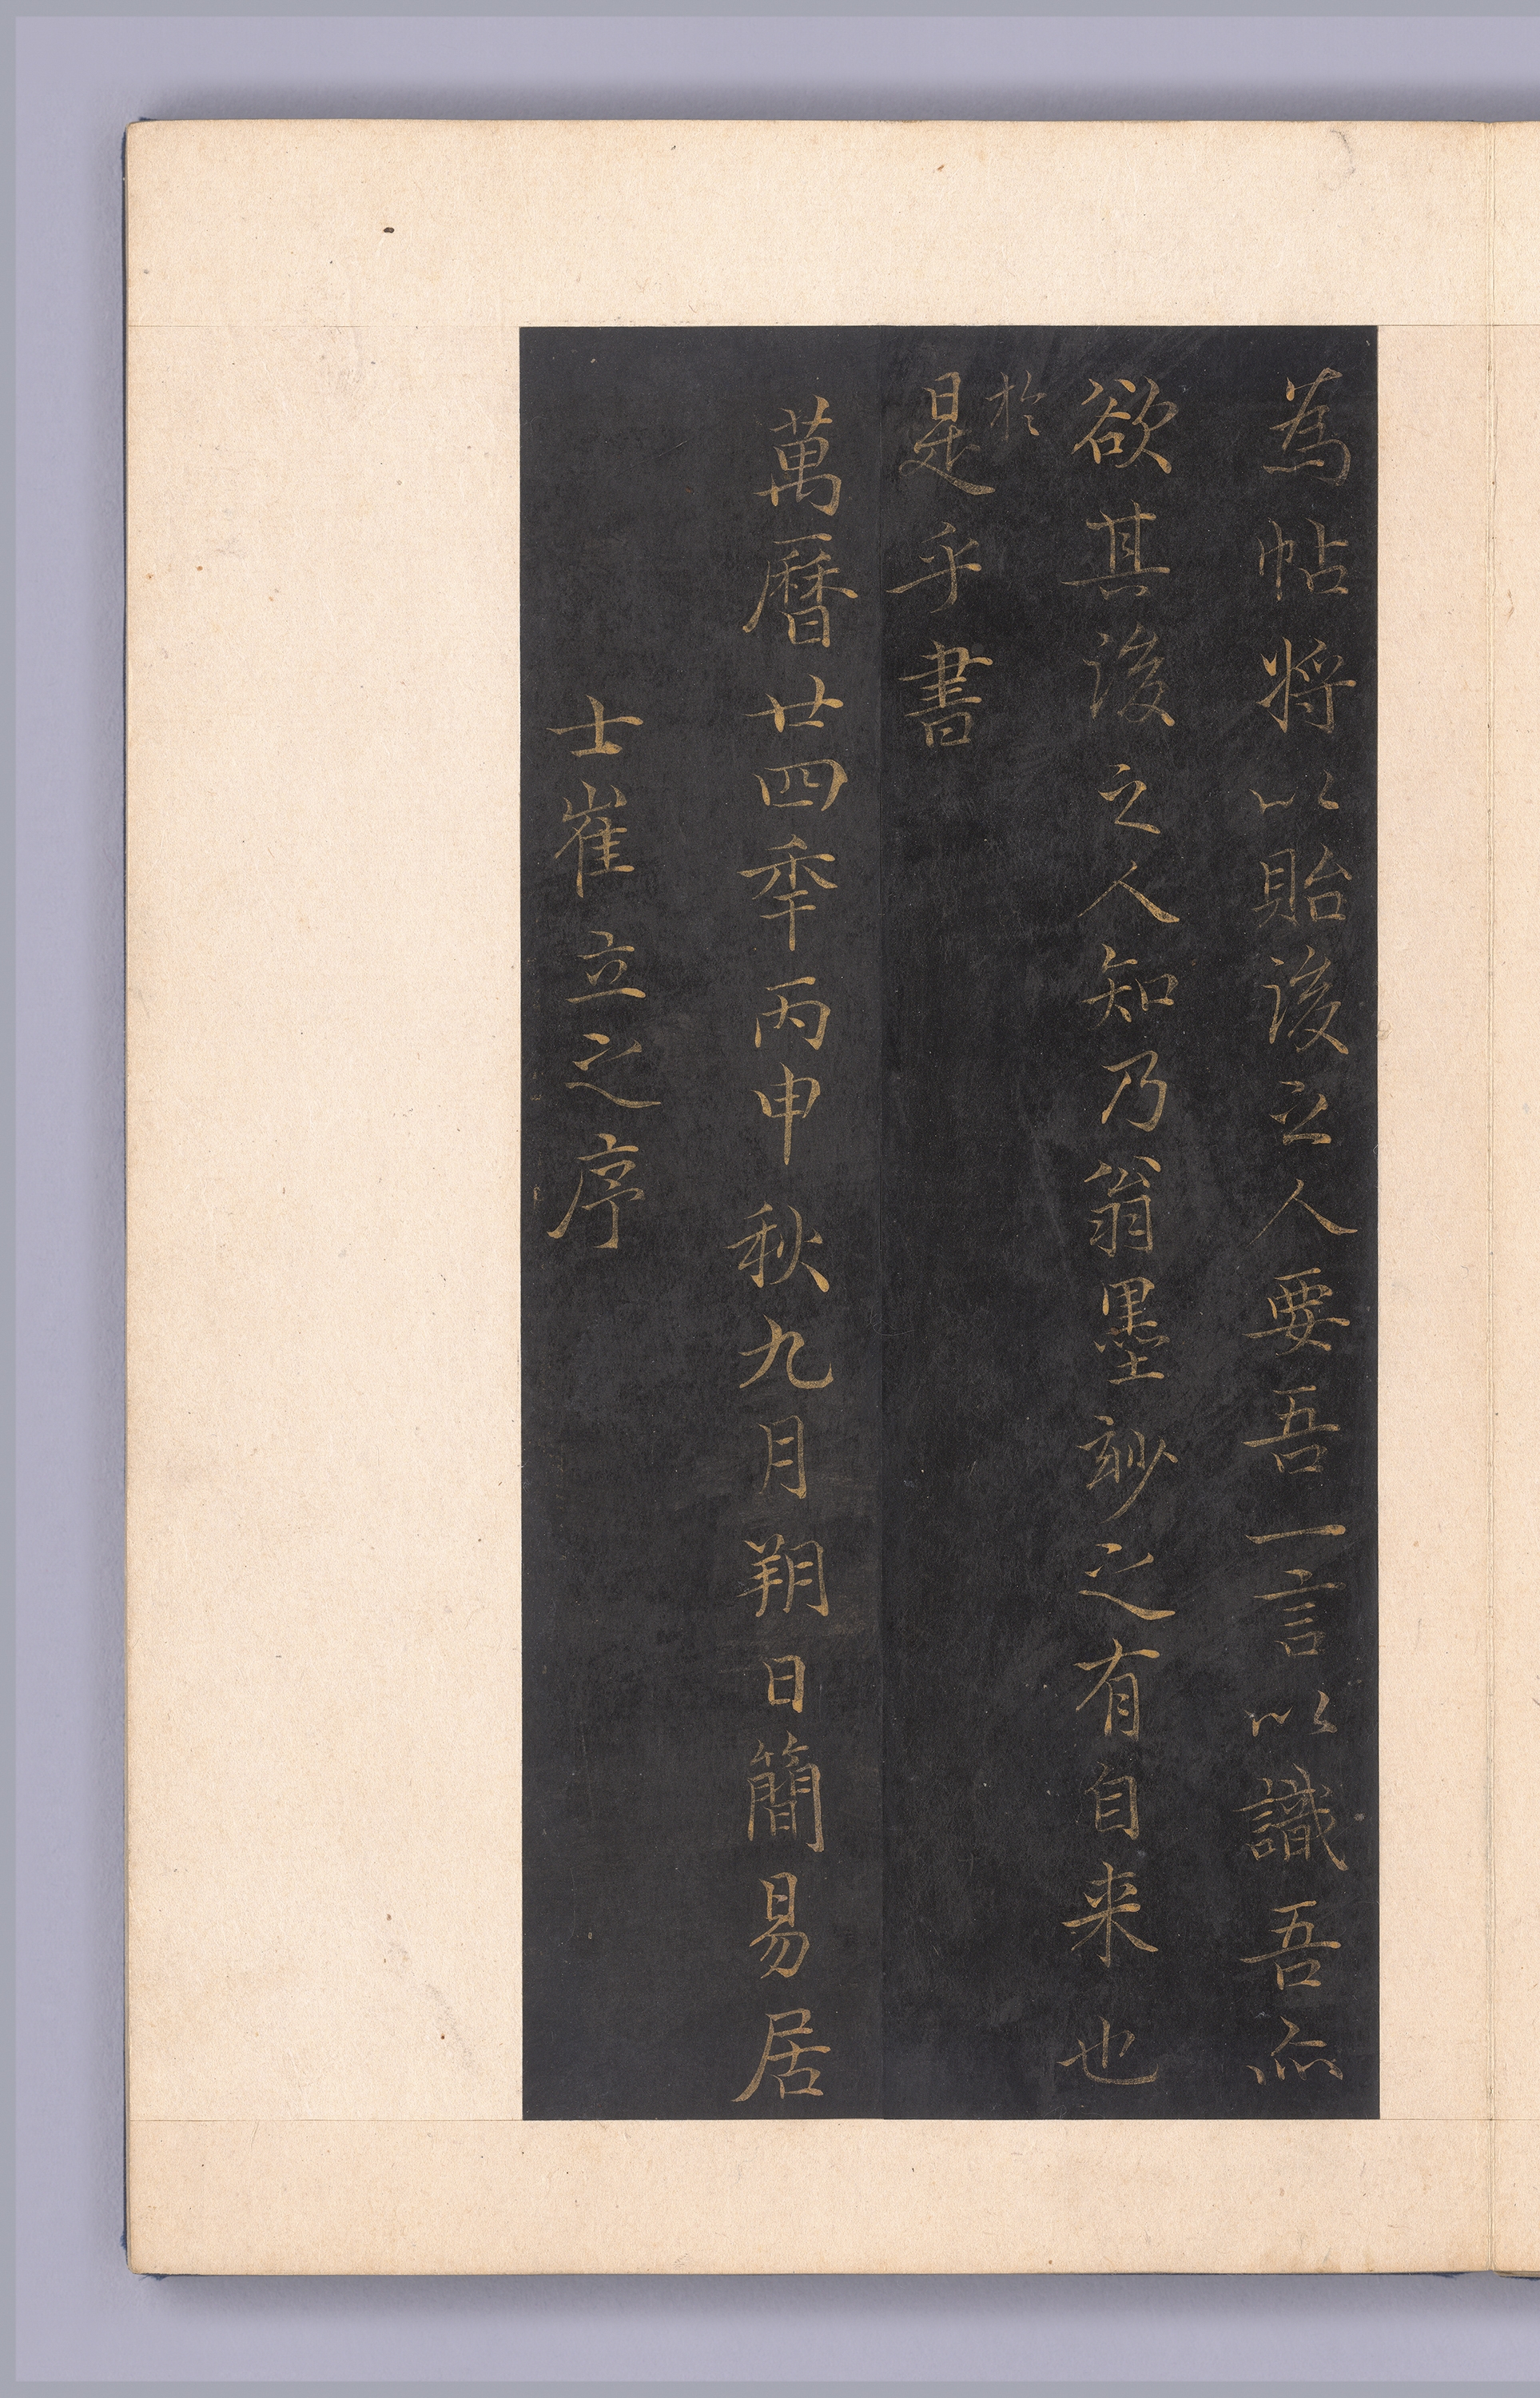 為帖将以貽後之人要吾一言以識吾亦
欲其後之人知乃翁墨玅之有自来也
於
是乎書
萬曆廿四秊丙申秋九月朔日簡易居
士崔立之序